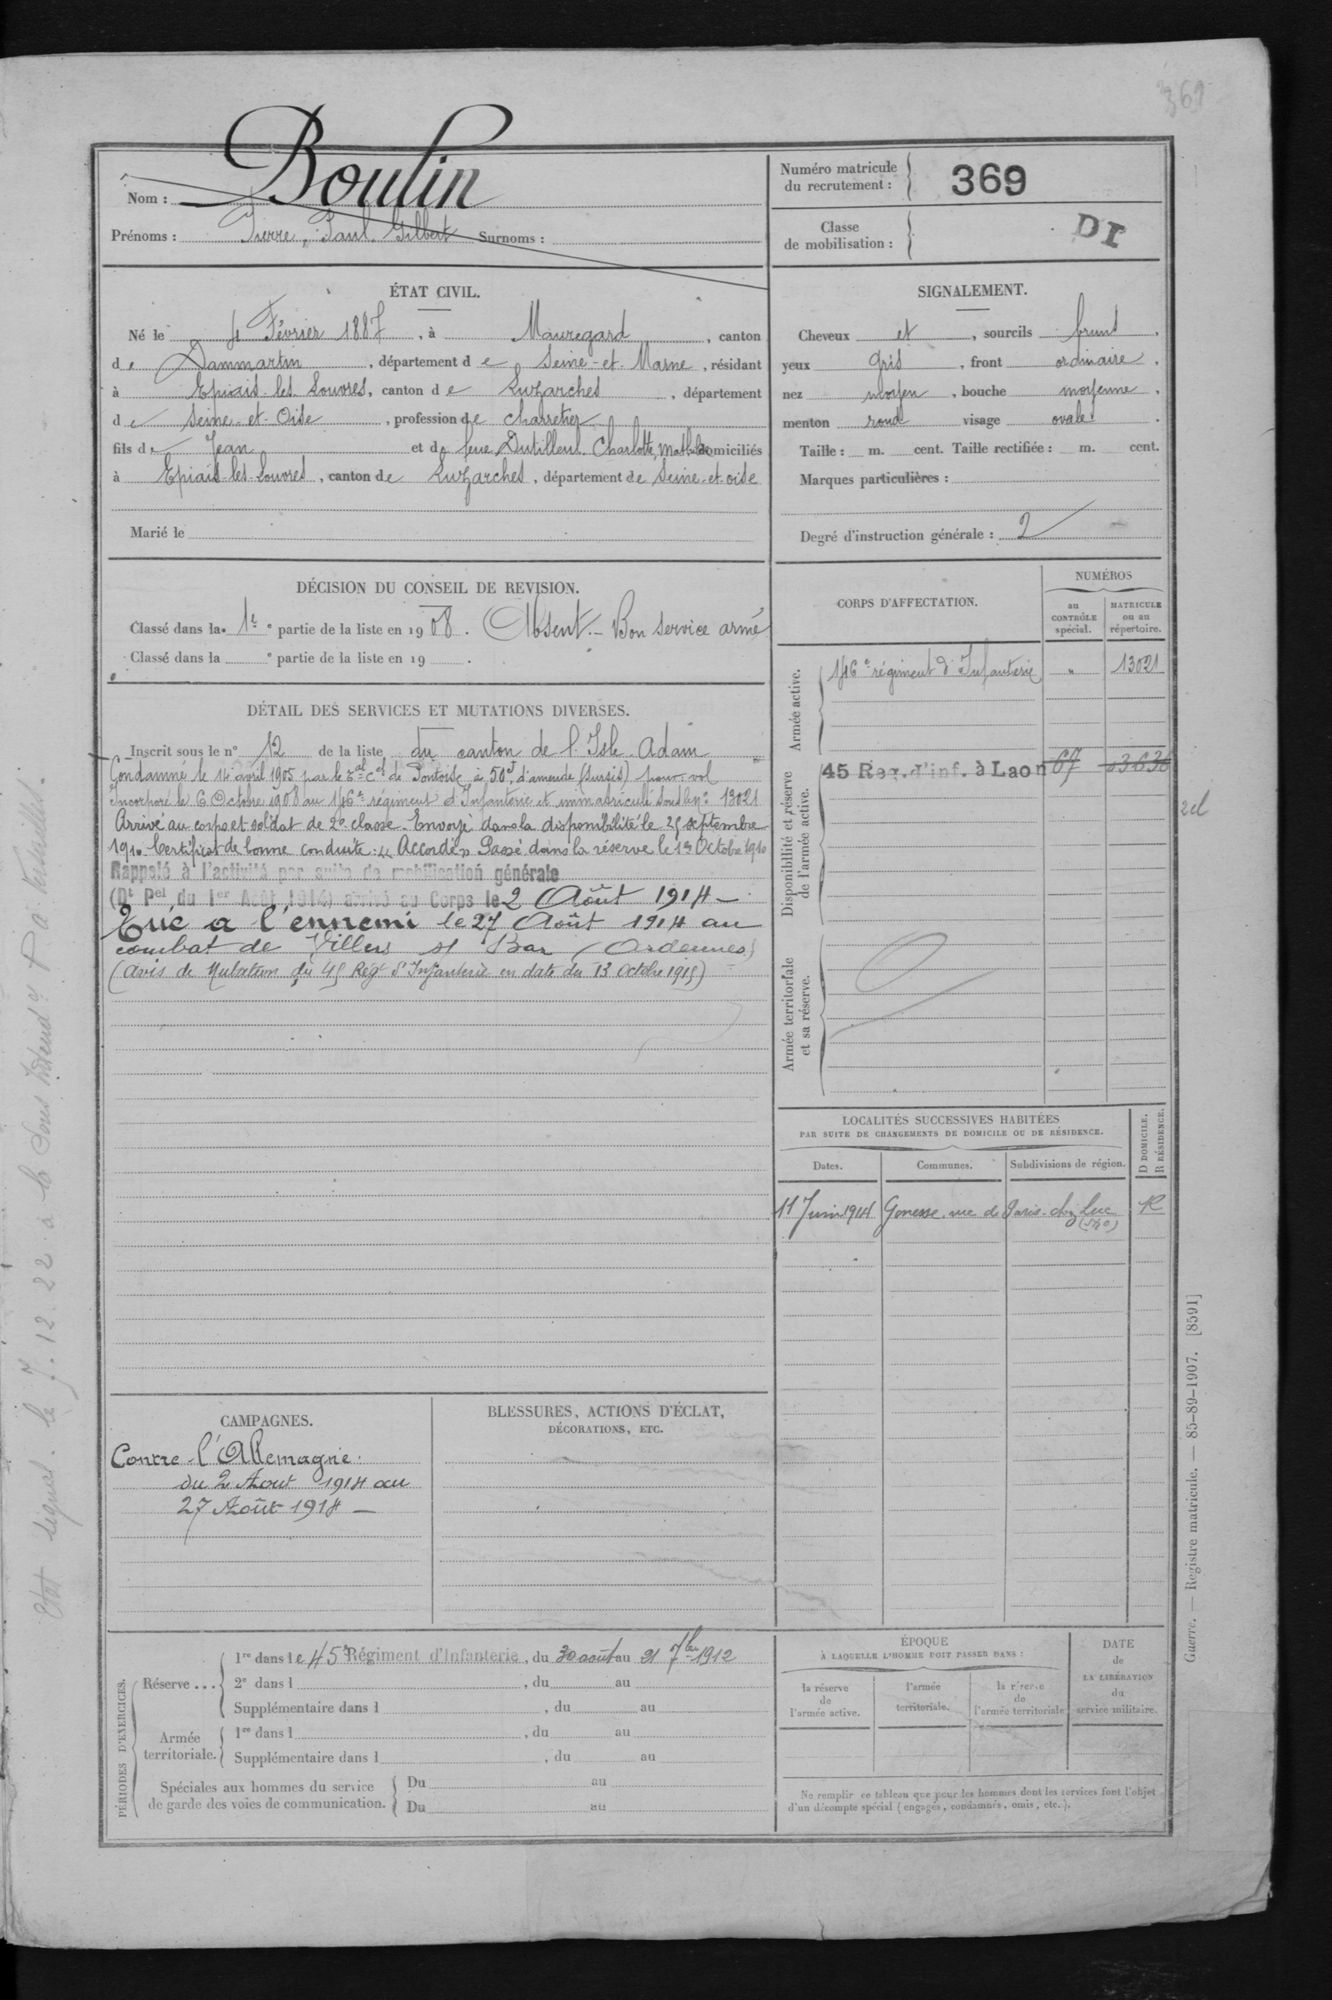 369
Nom : Boulin
Prénoms : Pierre, Paul Gilbert Surnoms :
Numéro matricule du recrutement : 369
Classe de mobilisation :
DI
ÉTAT CIVIL.
Né le 4 Février 1887, à Mauregard, canton
de Dammartin, département de Seine-et-Marne, résidant
à Epiais-les-Louvres, canton de Luzarches, département
de Seine-et-Oise, profession de charretier
fils de Jean et de feue Dutilleul Charlotte, Mathilde domiciliés
à Epiais-les-Louvres, canton de Luzarches, département de Seine-et-oise
Marié le
SIGNALEMENT.
Cheveux et, sourcils bruns.
yeux Gris, front ordinaire.
nez Moyen, bouche moyenne.
menton rond visage ovale.
Taille : m. cent. Taille rectifiée : m. cent.
Marques particulières :
Degré d'instruction générale : 2
DÉCISION DU CONSEIL DE REVISION.
Classé dans la 1re partie de la liste en 1908. Absent.- Bon service armé
Classé dans la e partie de la liste en 19 .
DÉTAIL DES SERVICES ET MUTATIONS DIVERSES.
Inscrit sous le n° 12 de la liste du canton de l'Isle Adam
Condamné le 14 avril 1905 par le Tal Cel de Pontoise à 50f d'amende (sursis) pour vol
Incorporé le 6 Octobre 1908 au 146e régiment d'Infanterie et immatriculé sous le n° 13021
Arrivé au corps et soldat de 2e classe. Envoyé dans la disponibilité le 25 septembre
1910. Certificat de bonne conduite : "Accordé" Passé dans la réserve le 1er Octobre 1910
Rappelé à l'activité par suite de mobilisation générale
(Dt Pel du 1er Août 1914) arrivé au Corps le 2 Août 1914 -
Tué a l'ennemi le 27 Août 1914 au
combat de Villers s/ Bar (Ardennes)
(Avis de Mutation du 45 Régt d'Infanterie en date du 13 Octobre 1915)
CORPS D'AFFECTATION.
NUMÉROS
au CONTRÔLE spécial.
MATRICULE ou au répertoire.
Armée active.
146e régiment d'Infanterie " 13021
Disponibilité et réserve de l'armée active.
45 Reg. d'inf. à Laon 67 03636
Armée territoriale et sa réserve.
LOCALITÉS SUCCESSIVES HABITÉES
PAR SUITE DE CHANGEMENTS DE DOMICILE OU DE RÉSIDENCE.
D DOMICILE. R RÉSIDENCE.
Dates. Communes. Subdivisions de région.
11 Juin 1914 Gonesse. rue de Paris. chez Luc R
(S&O)
CAMPAGNES.
Contre l'Allemagne :
du 2 Aout 1914 au
27 Août 1914 -
BLESSURES, ACTIONS D'ÉCLAT,
DÉCORATIONS, ETC.
PÉRIODES D'EXERCICES.
Réserve ...
1re dans le 45e Régiment d'Infanterie, du 30 août au 21 7bre 1912
2e dans l , du au
Supplémentaire dans l , du au
Armée territoriale.
1re dans l , du au
Supplémentaire dans l , du au
Spéciales aux hommes du service
de garde des voies de communication.
Du au
Du au
ÉPOQUE
À LAQUELLE L'HOMME DOIT PASSER DANS :
la réserve de l'armée active.
l'armée territoriale.
la réserve de l'armée territoriale
DATE de LA LIBÉRATION du service militaire.
Ne remplir ce tableau que pour les hommes dont les services font l'objet
d'un décompte spécial (engagés, condamnés, omis, etc.).
Guerre. — Registre matricule. — 85-89-1907. [8591]
Etat signal. le 7.12.22 à la Sous Intend